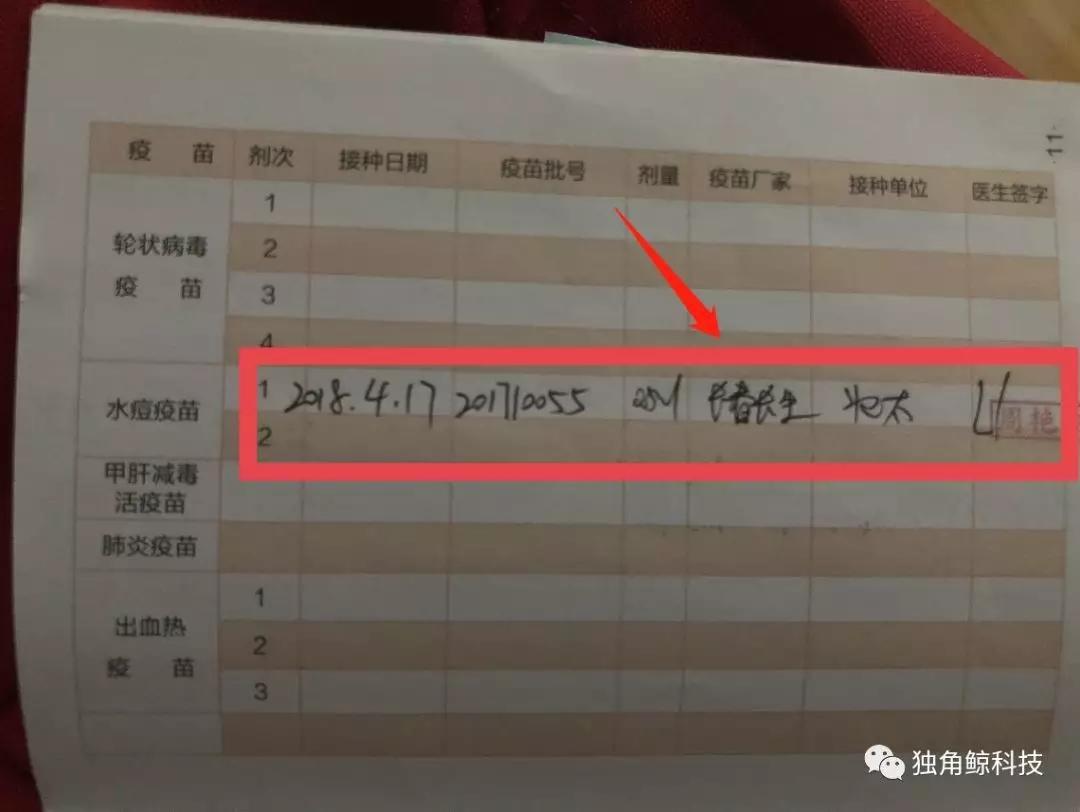 11
疫 苗 剂次 接种日期 疫苗批号 剂量 疫苗厂家 接种单位 医生签字
轮状病毒
疫 苗
1
2
3
4
水痘疫苗
1 2018.4.17 201710055 长春长生
周艳
2
甲肝减毒
活疫苗
肺炎疫苗
出血热
疫 苗
1
2
3
独角鲸科技